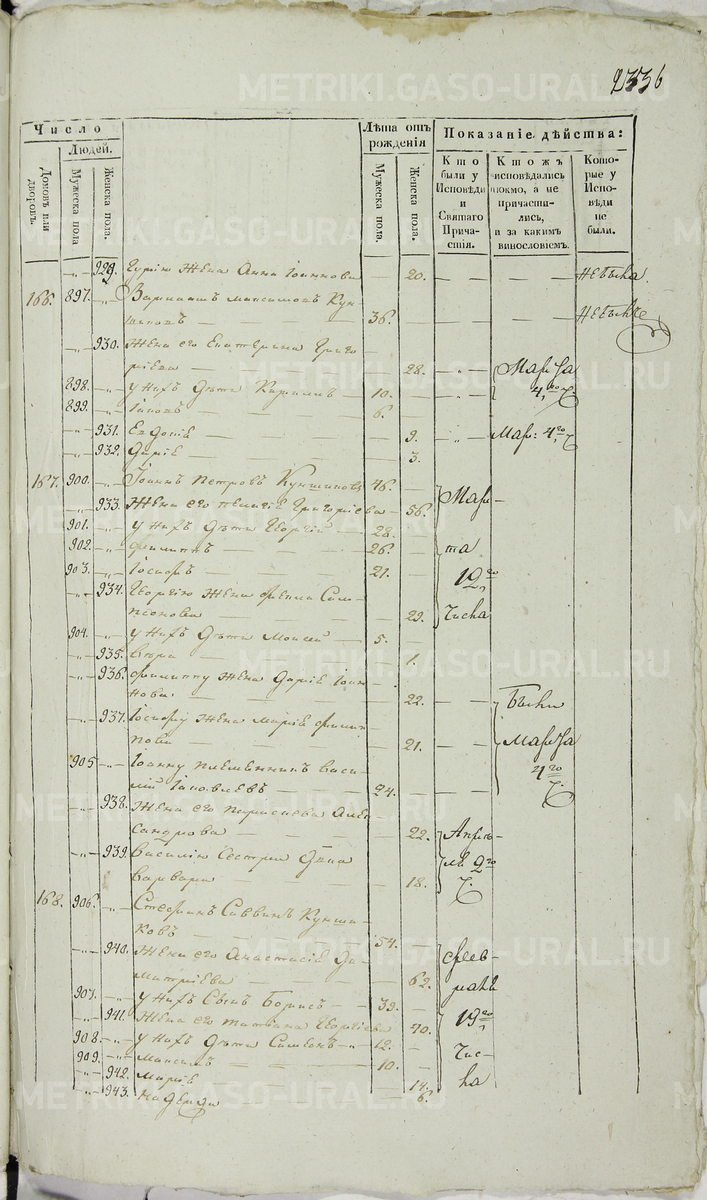 2336
Число
Людей.
Домовъ или дворовъ.
Мужеска пола
Женска пола.
Лѣта отъ рожденія
Мужеска пола.
Женска пола.
Показаніе дѣйства:
Кто были у Исповѣди и Святаго Причастія.
Ктожъ исповѣдались токмо, а не причастились, и за какимъ винословіемъ.
Которые у Исповѣди не были.
929. Гурію жена Анна Іоаннова — 20. — — небыла
166. 897. Варлаамъ Максимовъ Кун
шиковъ — — 36. — — небылъ
930. Жена его Екатерина Григо
ріева — — 28. Марта
898. у нихъ дѣти Кириллъ — 10. 4го Ч.
899. Іаковъ — 6.
931. Евдокія — 9. Мар: 4го Ч
932. Дарія — 3.
167. 900. Іоаннъ Петровъ Куншиковъ 46.
933. Жена его Пелагія Григоріева — 56. Мар
901. у нихъ дѣти Георгій — 28.
902. Филиппъ — 26. та
903. Іосифъ — 21. 19го
934. Георгію жена Фекла Сам
псонова — 29. Числа
904. у нихъ дѣти Моисей — 5.
935. Вѣра — 1.
936. Филиппу жена Дарія Іоан
нова — 22. Были
937. Іосифу жена Марія Филип
пова — 21. Марта
905 Іоанну племянникъ Васи
лій Іаковлевъ — 24. 4го Ч.
938. Жена его Параскева Алек
сандрова — 22. Апрѣ
939. Василію сестра дѣвка ля 9го
Варвара — 18. Ч.
168. 906. Стефанъ Саввинъ Кунши
ковъ — 54.
940. Жена его Анастасія Ди Фев
митріева — 62. раля
907. у нихъ сынъ Борисъ — 39.
941. Жена его Татіана Георгіева 40. 19го
908. у нихъ дѣти Симеонъ — 12. Чис
909. Максимъ — 10.
942. Марія — 14. ла
943. Надежда 6.
METRIKI.GASO-URAL.RU